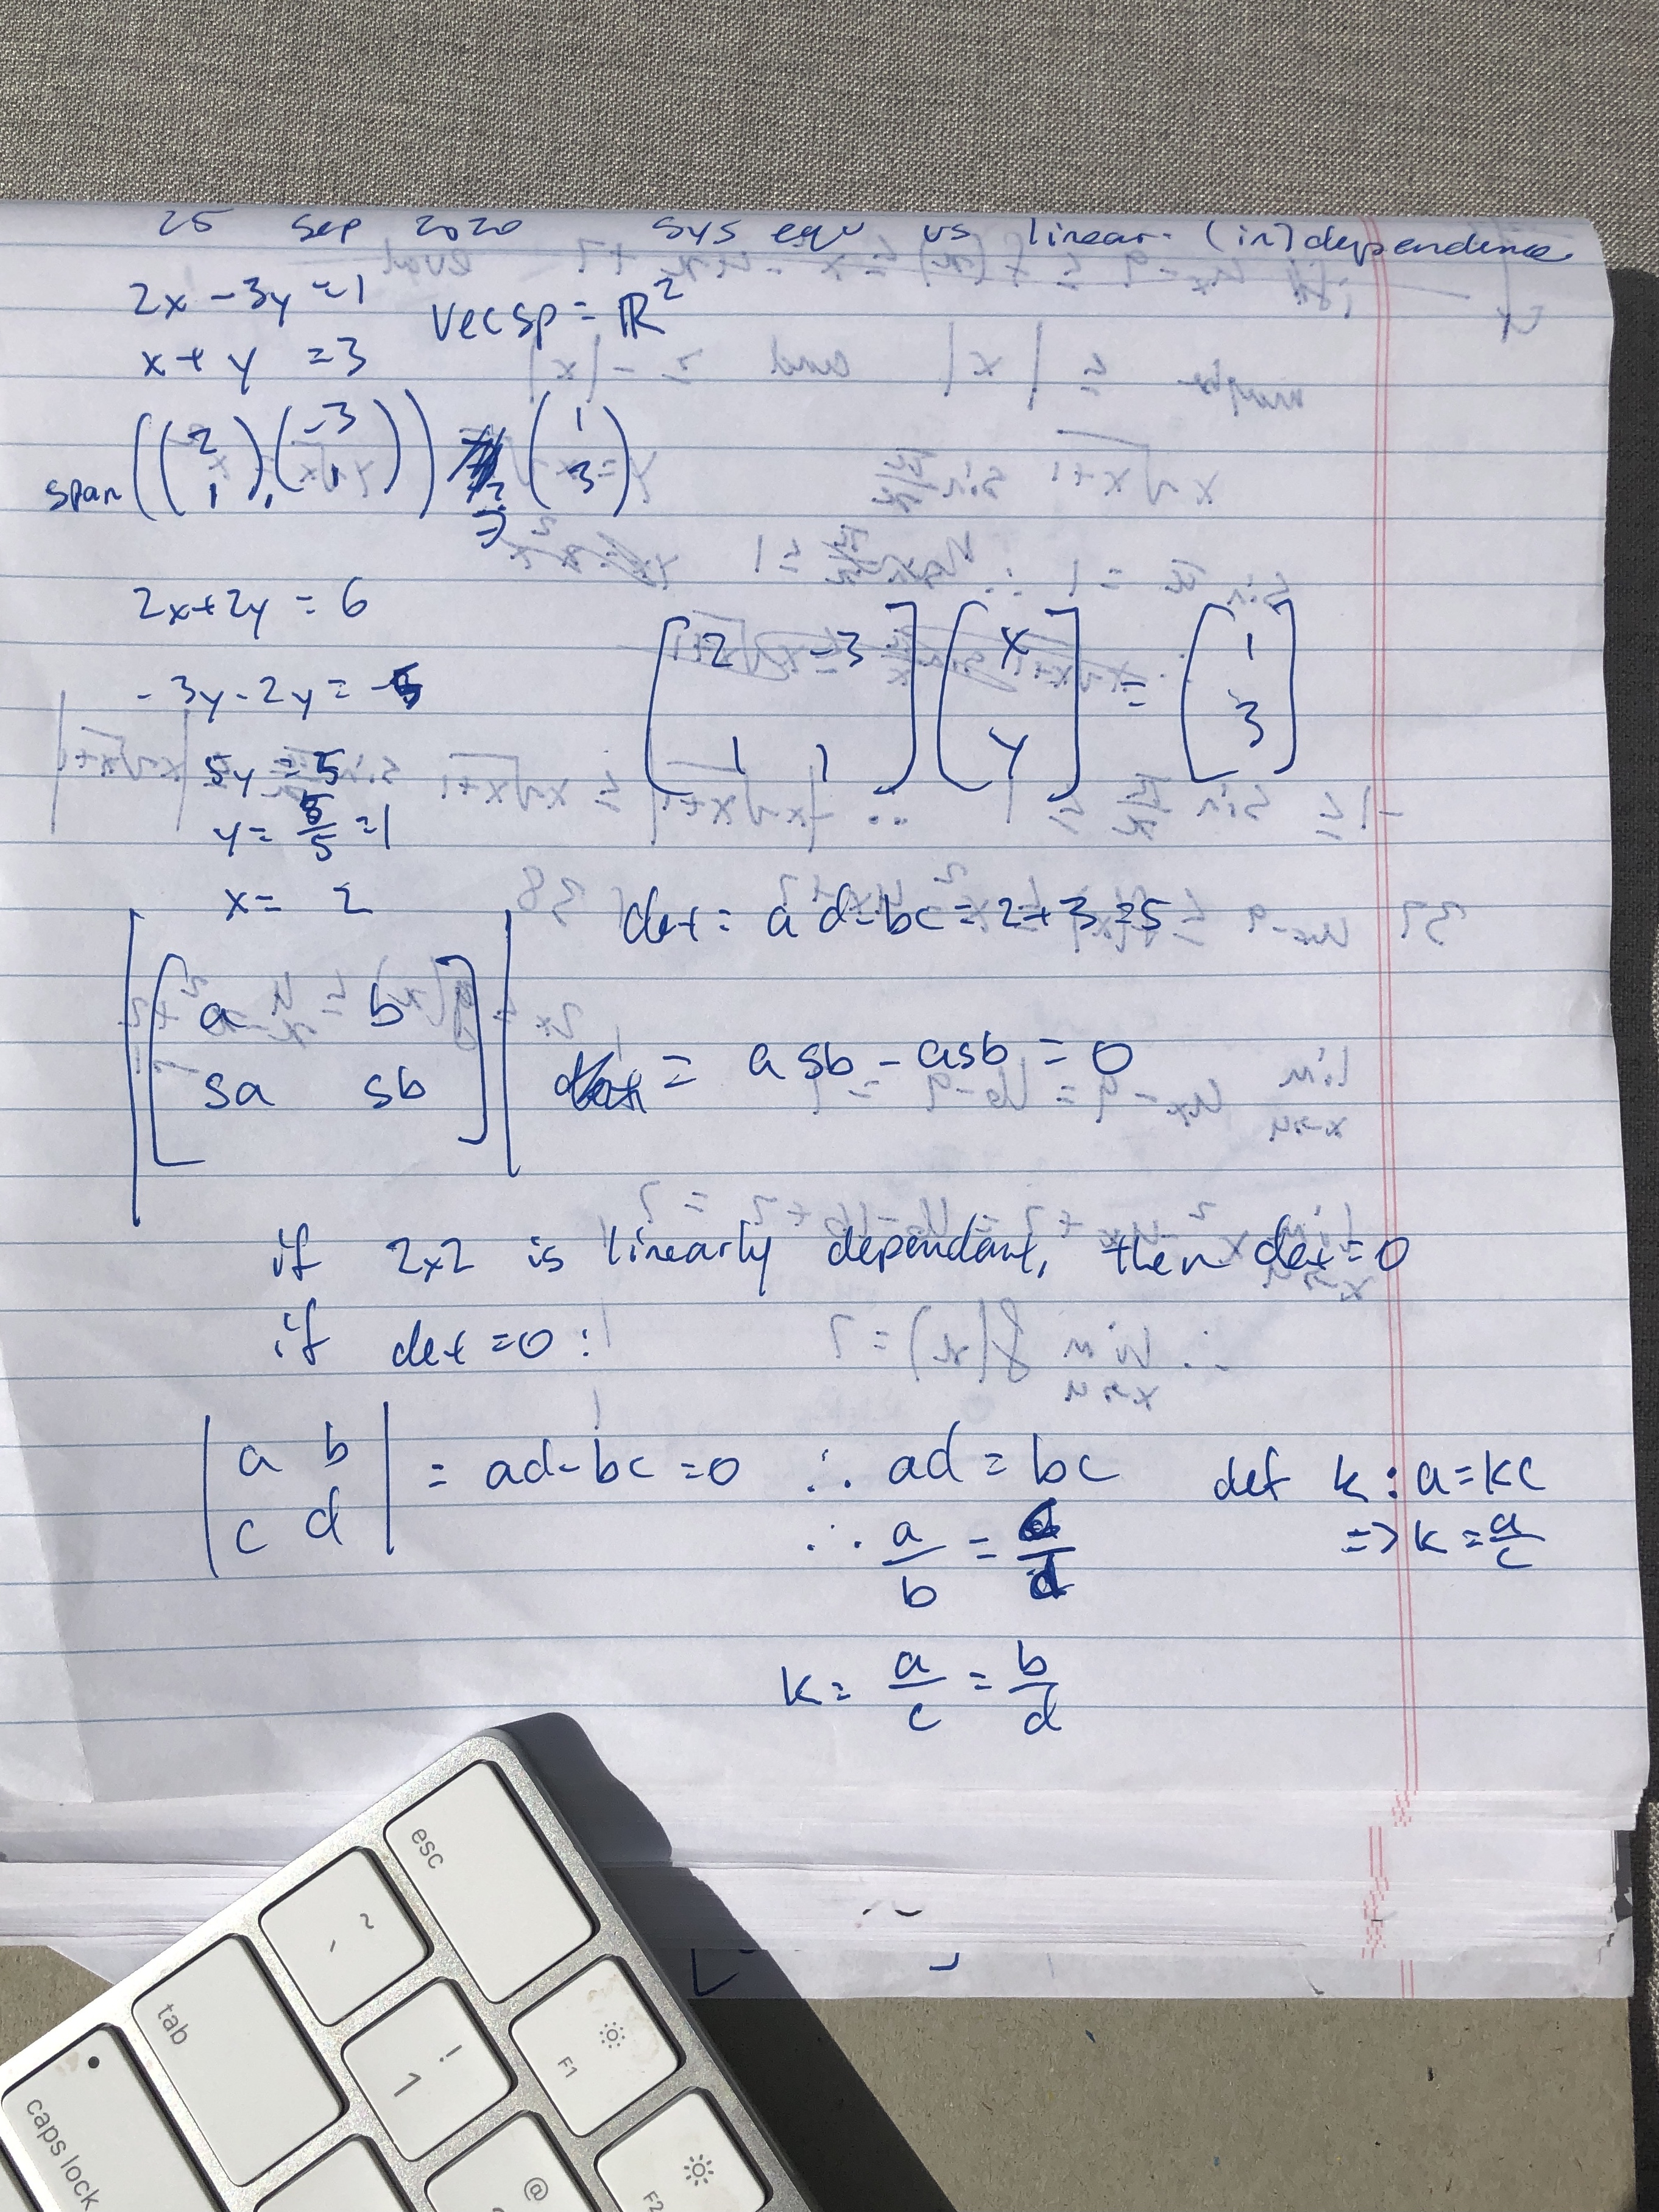 25 sep 2020 sys equ vs linear (in)dependence
2x - 3y = 1
vec sp = ℝ²
x + y = 3
span((2 1), (-3 1)) ∋ (1 3)
2x+2y = 6
-3y-2y = -5
5y = 5
y = 5/5 = 1
x = 2
[2 -3
1 1] [x
y] = [1
3]
det = ad-bc = 2+3 = 5
|[a b
sa sb]| = asb - asb = 0
if 2x2 is linearly dependant, then det=0
if det =0 :
|a b
c d| = ad-bc =0 ∴ ad = bc
∴ a/b = c/d
def k : a = kc
=> k = a/c
k = a/c = b/d
esc
~
tab
!
1
F1
caps lock
@
F2